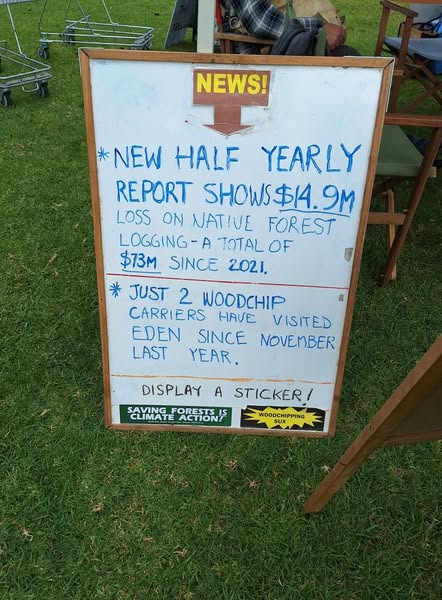 NEWS!
* NEW HALF YEARLY
REPORT SHOWS $14.9M
LOSS ON NATIVE FOREST
LOGGING - A TOTAL OF
$73M SINCE 2021.
* JUST 2 WOODCHIP
CARRIERS HAVE VISITED
EDEN SINCE NOVEMBER
LAST YEAR.
DISPLAY A STICKER!
SAVING FORESTS IS
CLIMATE ACTION!
WOODCHIPPING
SUX